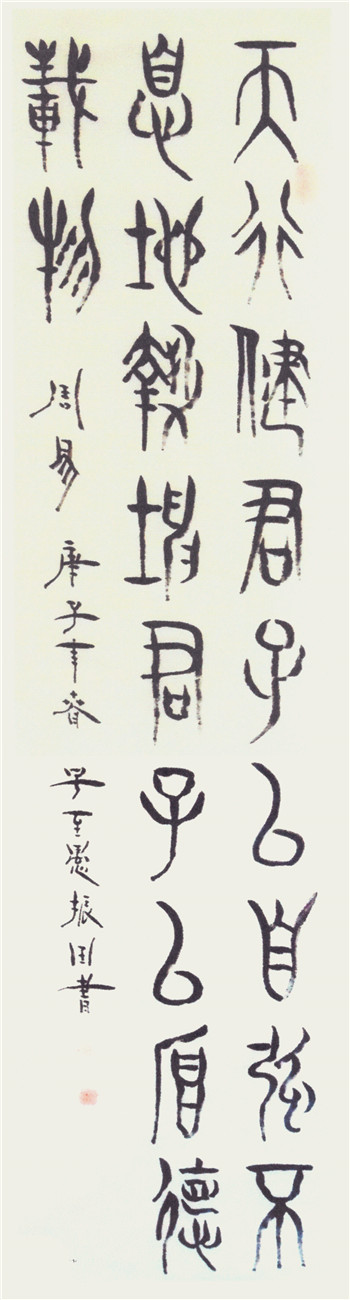 天行健君子以自强不
息地勢坤君子以厚德
載物 周易 庚子年春 至愚 振国書